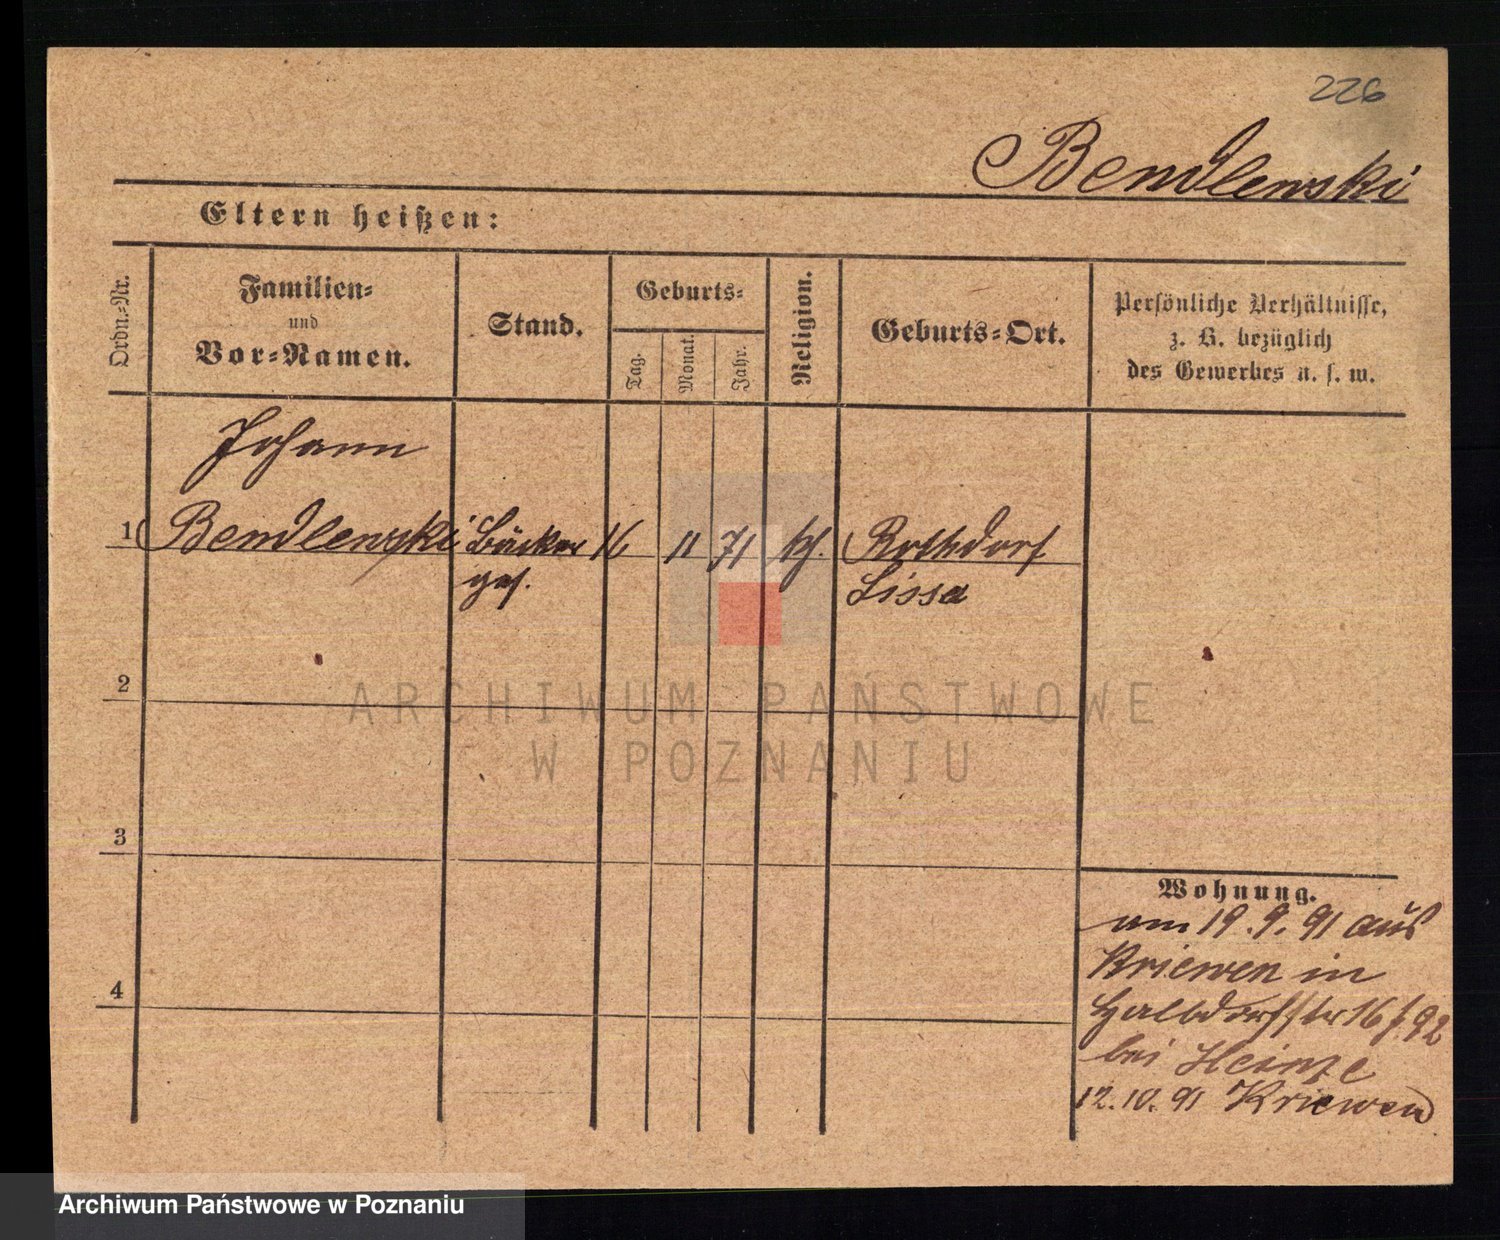 226
Bendlewski
Eltern heißen:
Ordn.-Nr.
Familien-
und
Vor-Namen.
Stand.
Geburts-
Tag.
Monat.
Jahr.
Religion.
Geburts-Ort.
Persönliche Verhältnisse,
z. B. bezüglich
des Gewerbes u. s. w.
Johann
1 Bendlewski Bäcker 16 11 71 kth. Rothdorf
ges. Lissa
2
3
4
Wohnung.
am 19.9.91 aus
Kriewen in
Halbdorfstr 16 f. 92
bei Heinze
12.10.91 Kriewen
ARCHIWUM PAŃSTWOWE
W POZNANIU
Archiwum Państwowe w Poznaniu